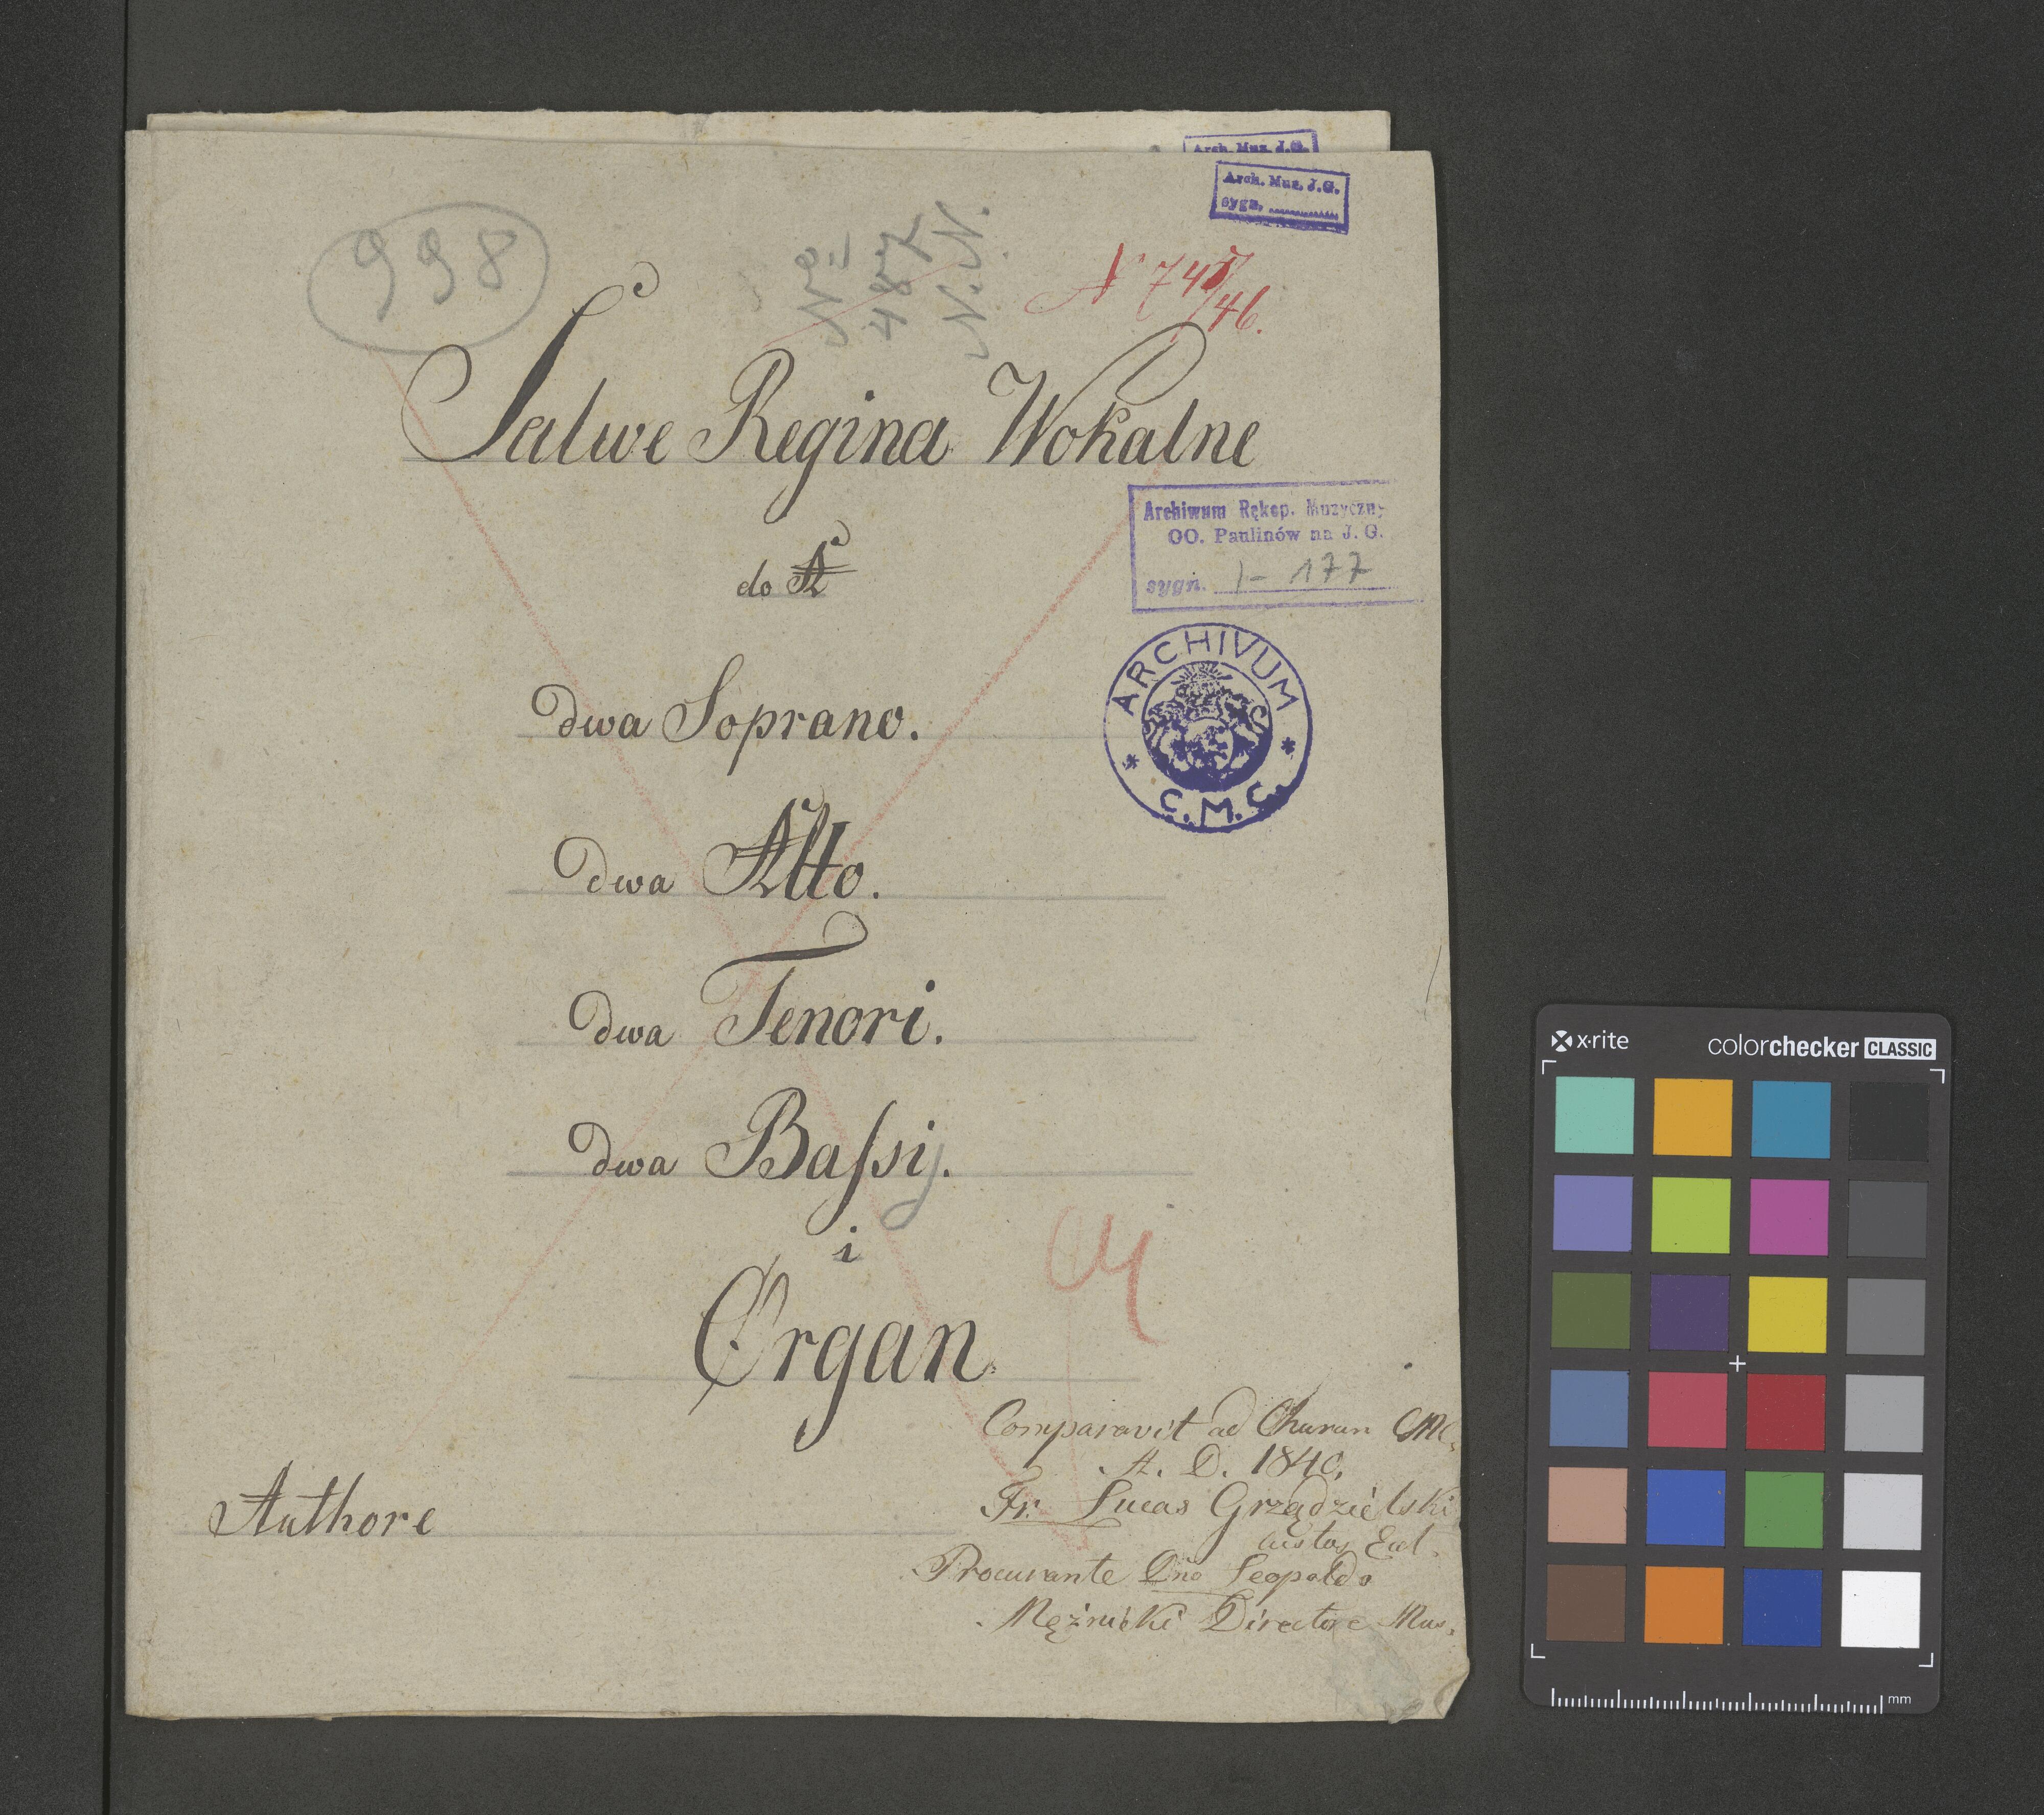 Arch. Muz. J.G.
Arch. Muz. J.G.
sygn.
998
Nro
487
N.N.
N 747/46.
Salwe Regina Wokalne
do A
Archiwum Rękop. Muzyczny
OO. Paulinów na J. G.
sygn. I-177
ARCHIVUM
* C.M.C. *
dwa Soprano.
dwa Alto.
dwa Tenori.
dwa Bassij.
i
Organ
Comparavit ad Churum CMC.
A. D. 1840.
Fr. Lucas Grządzielski
custos Eccl.
Procurante Dno Leopoldo
Mężnicki Directore Mus.
Authore
x·rite
colorchecker CLASSIC
mm